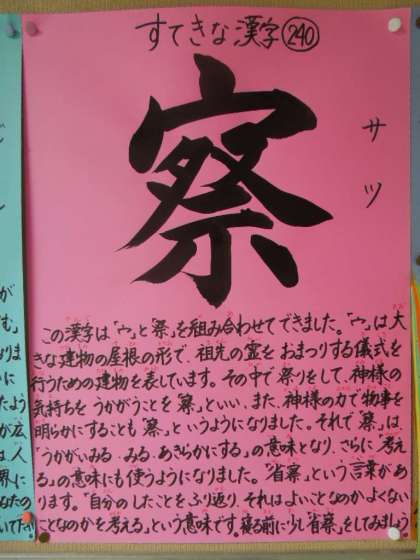 すてきな漢字240
察
サツ
この漢字は「宀」と「祭」を組み合わせてできました。「宀」は大
きな建物の屋根の形で、祖先の霊をおまつりする儀式を
行うための建物を表しています。その中で祭りをして、神様の
気持ちをうかがうことを「察」といい、また、神様の力で物事を
明らかにすることも「察」というようになりました。それで「察」は、
「うかがいみる・みる・あきらかにする」の意味となり、さらに「考え
る」の意味にも使うようになりました。「省察」という言葉があ
ります。「自分のしたことをふり返り、それはよいことなのか、よくない
ことなのかを考える」という意味です。寝る前に少し「省察」をしてみましょう